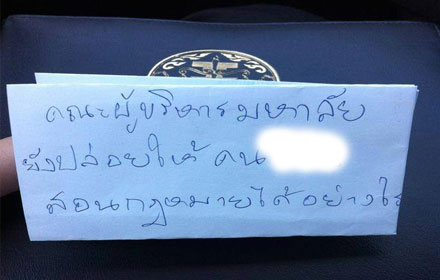 คณะผู้บริหารมหาลัย
ยังปล่อยให้ คน
สอนกฎหมายได้อย่างไร